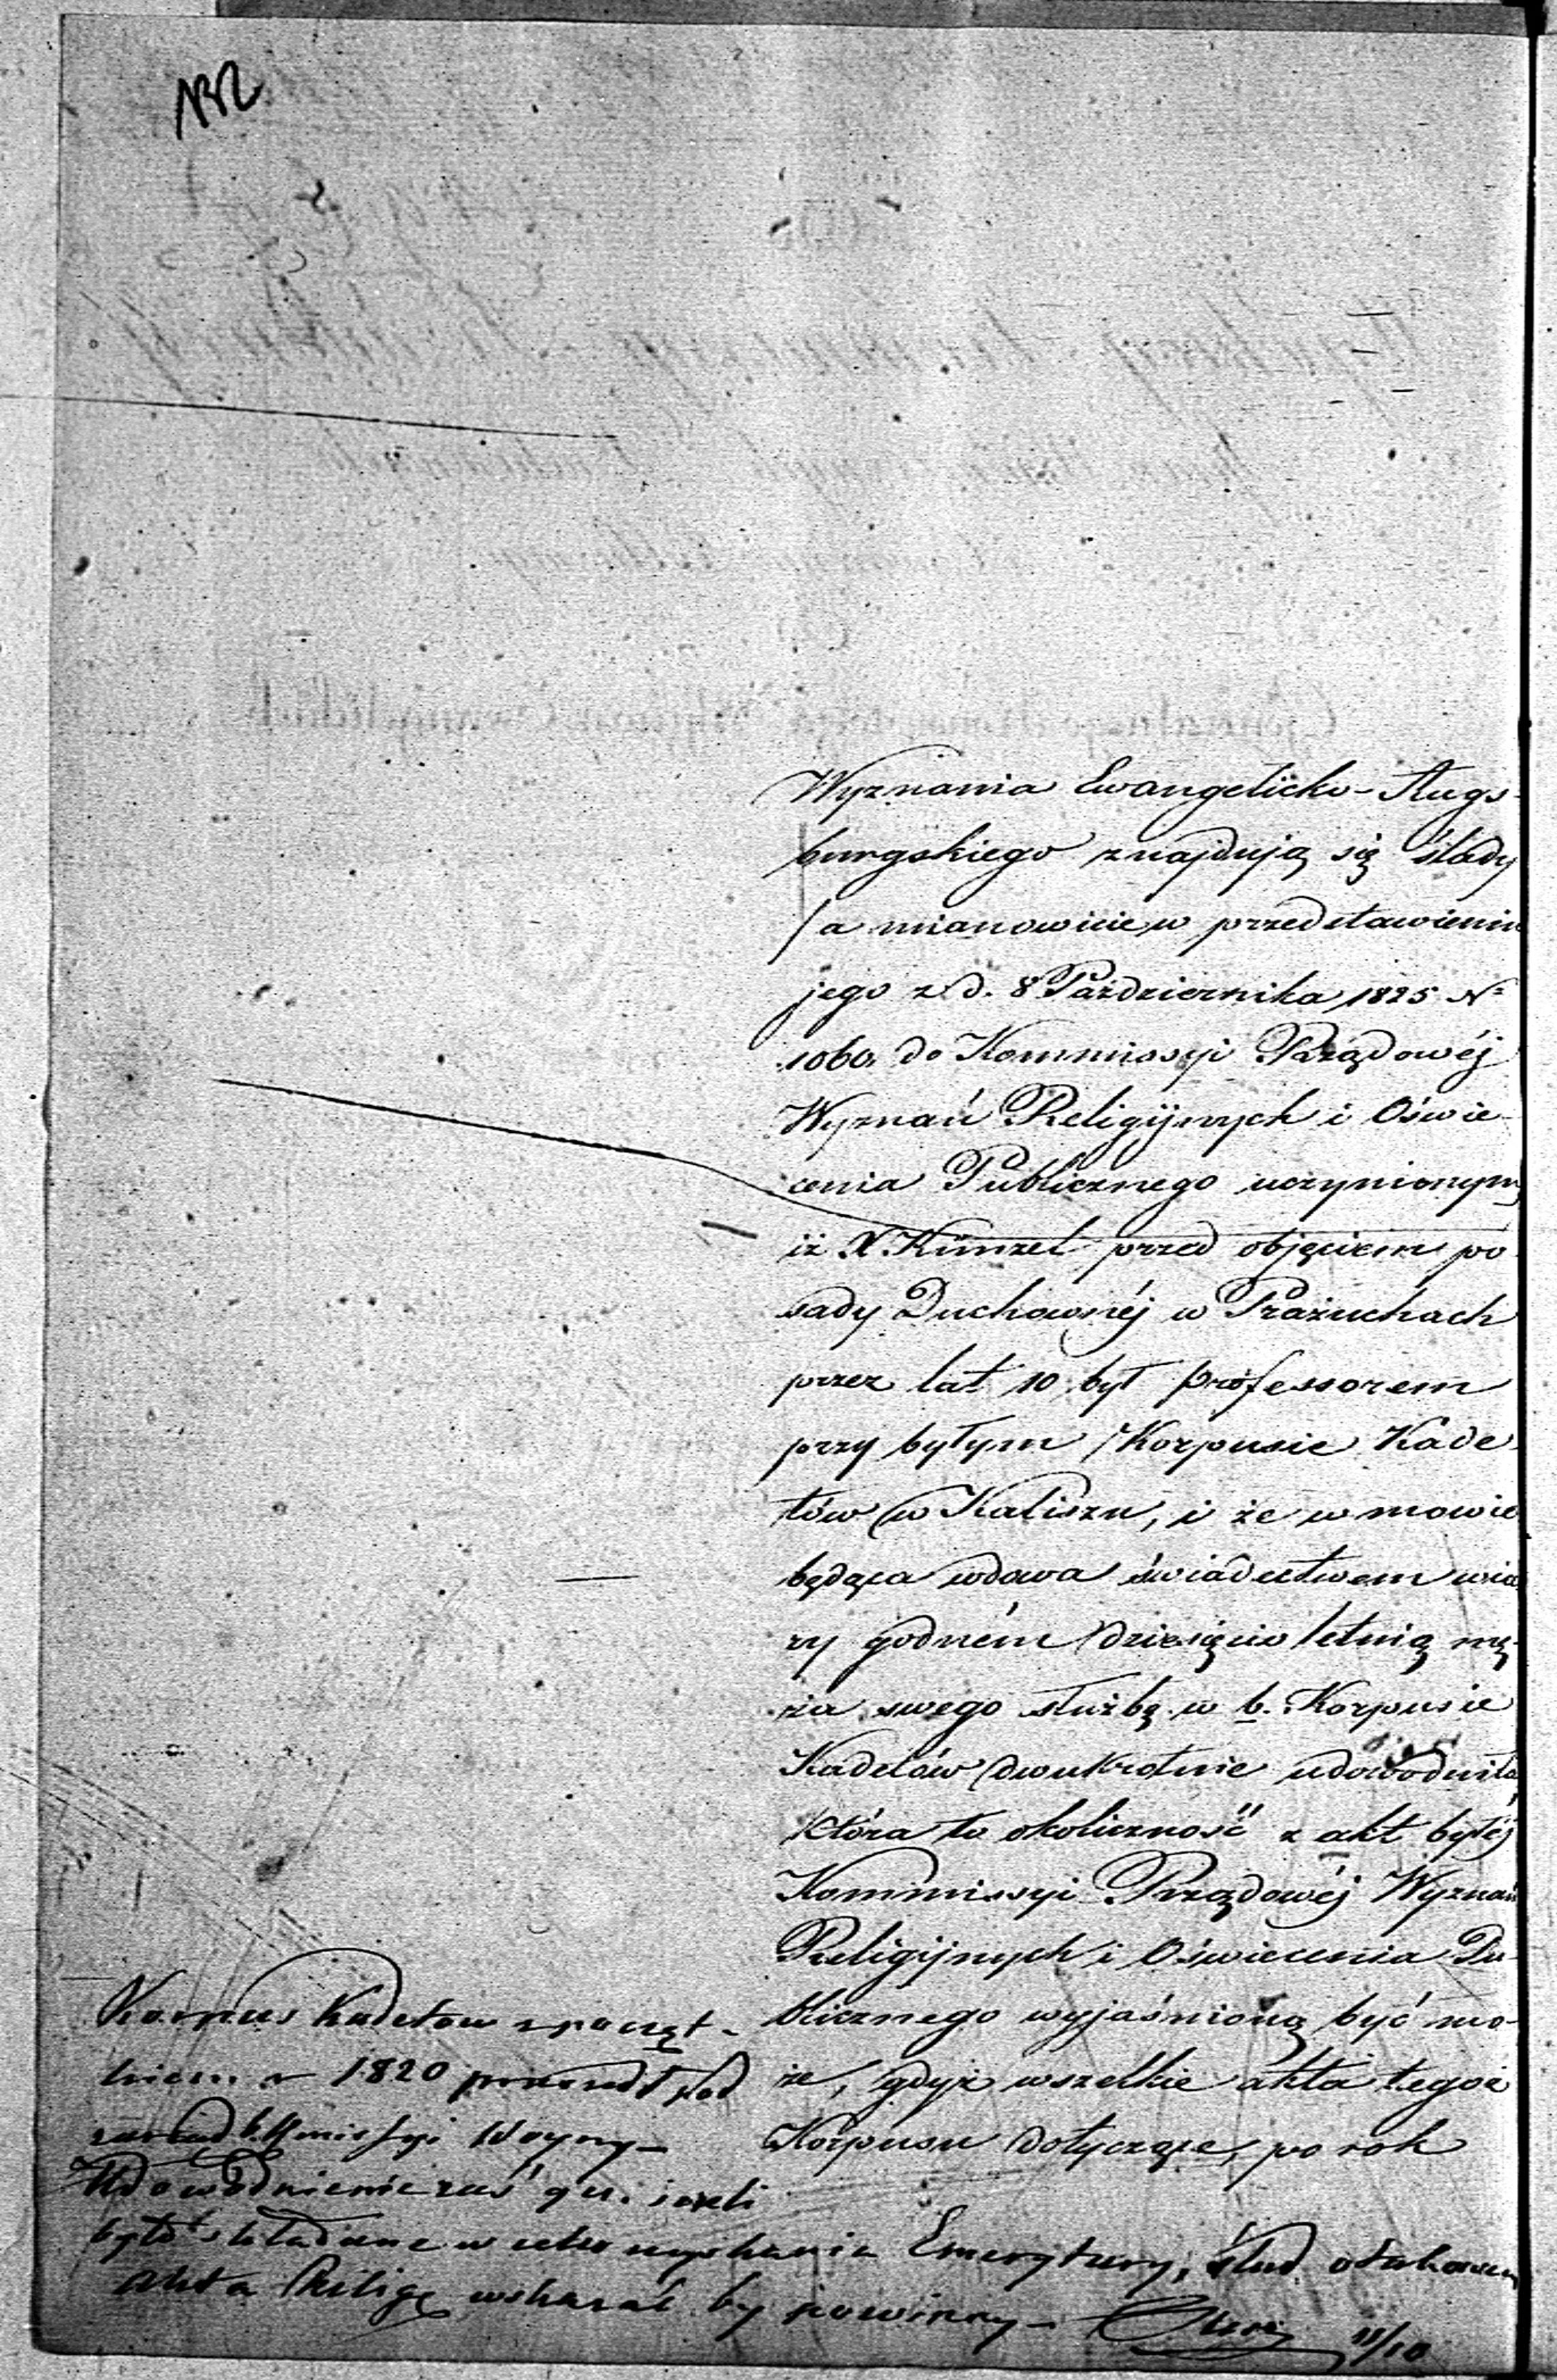 Wyznania Ewangelicko-Augs-
burgskiego znajdują się ślady
/a mianowicie w przedstawieniu
jego z d. 8 Października 1825 Nº
1060. do Kommissyi Rządowéj
Wyznań Religijnych i Oświe-
cenia Publicznego uczynionym
iż X. Künzel przed objęciem po
sady Duchownéj w Prażuchach
przez lat 10 był professorem
przy byłym Korpusie Kade
tów w Kaliszu, i że w mowie
będąca wdowa świadectwem wia
ry godném dziesięcio letnią mę
ża swego służbę w b. Korpusie
Kadetów dwukrotnie udowodniła,
która to okoliczność z akt byłéj
Kommissyi Rządowéj Wyznań
Religijnych i Oświecenia Pu-
blicznego wyjaśnioną być mo-
że, gdyż wszelkie akta tegoż
Korpusu dotyczące, po rok
Korpus Kadetow z począt-
kiem r 1820 pod
zarząd b. Kommissyi Woyny –
Udowodnienie zaś jeżeli
było składane w celu uzyskania Emerytury, ślad o takowem
Akta Religijne wskazać by powinny –
11/10